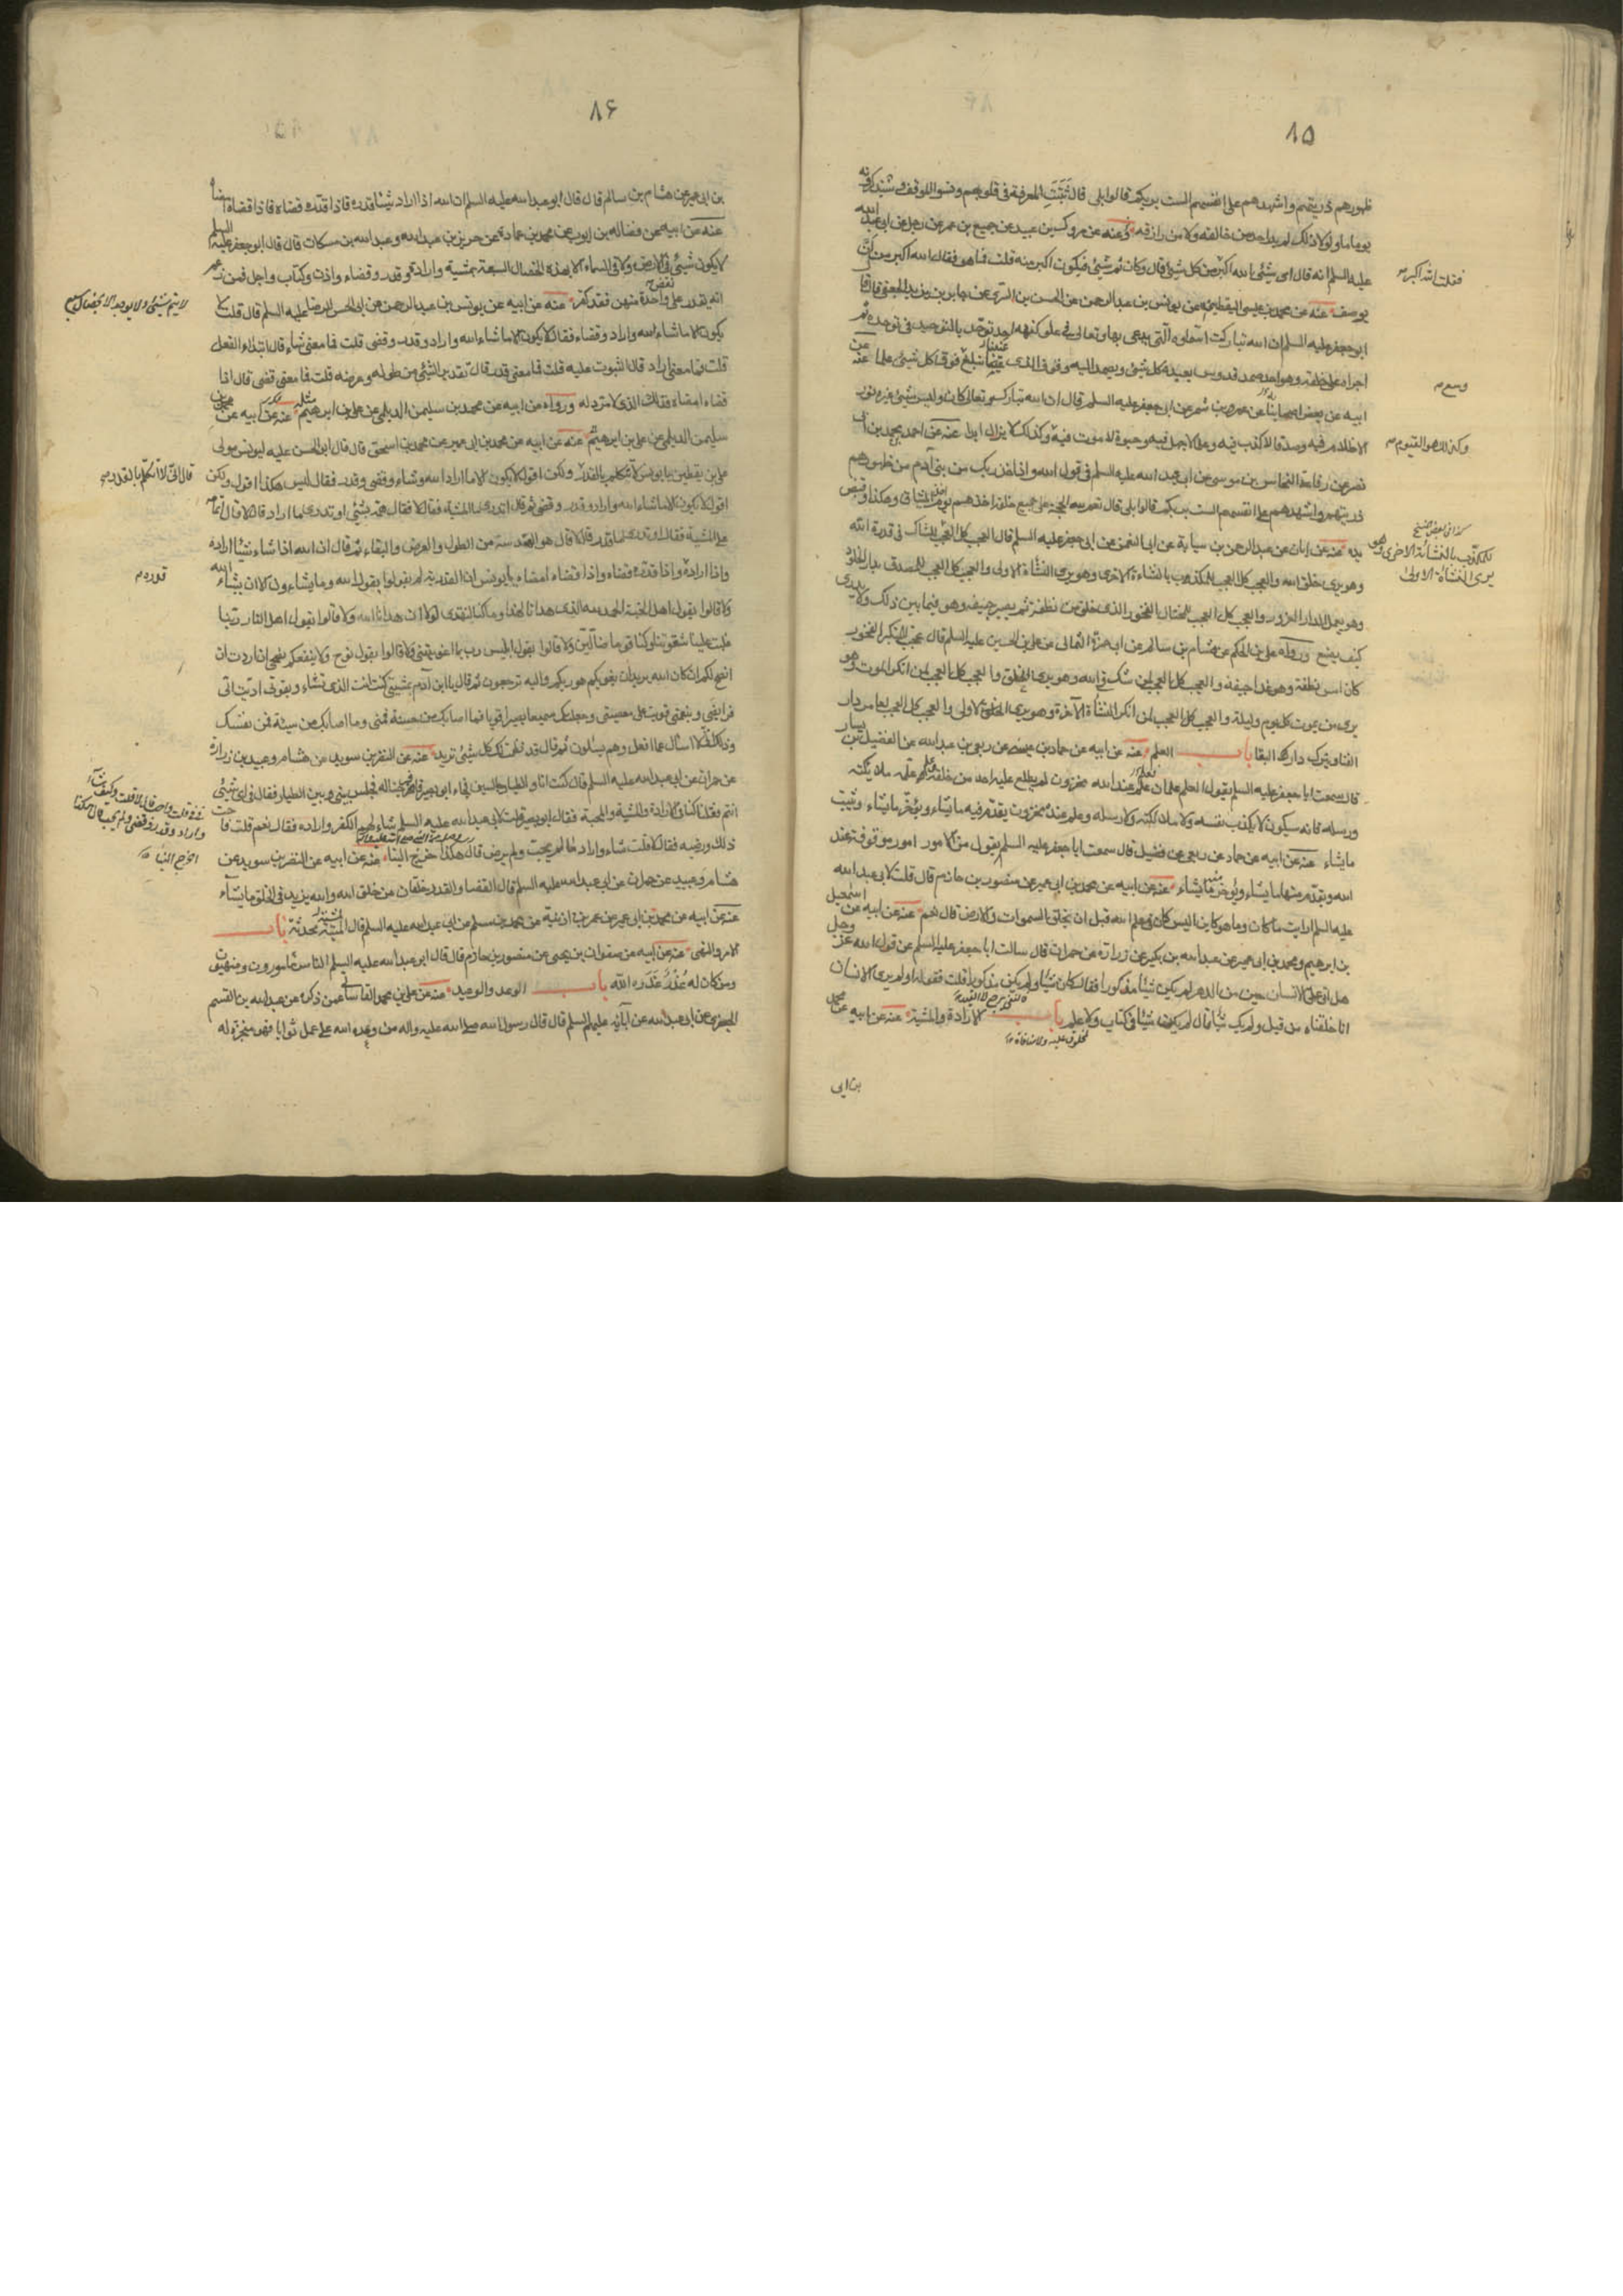 ٨۵
ظهورهم ذريتهم واشهدهم على انفسهم الست بربكم قالوا بلى قال ثبتت المعرفة فى قلوبهم ونسوا الموقف وسيذكرونه
يوما ما ولولا ذلك لم يدر احد من خالقه ولا من رازقه وعنه عن مروك بن عبيد عن جميع بن عمر عن رجل عن ابى عبد الله
عليه السلم انه قال اى شيئ الله اكبر من كل شيئ قال وكان ثم شيئ فيكون اكبر منه قلت فما هو فقال الله اكبر من ان
فقلت الله اكبر
يوصف عنه عن محمد بن عيسى اليقطينى عن يونس بن عبد الرحمن عن الحسن بن السرى عن جابر بن يزيد الجعفى قال قال
ابو جعفر عليه السلم ان الله تباركت اسماؤه التى يدعى بها وتعالى فى علو كنهه احد توحد بالتوحيد فى توحده ثم
اجراه على خلقه وهو احد صمد قدوس يعبده كل شيئ ويصمد اليه وفوق الذى عسينا نبلغ فوق كل شيئ علما عنه عن
وسع
ابيه عن بعض اصحابنا عن عمرو بن شمر عن ابى جعفر عليه السلم قال ان الله تبارك وتعالى كان وليس شيئ غيره نور
لا ظلام فيه وصدقا لا كذب فيه وعلما لا جهل فيه وحيوة لا موت فيه وكذلك لا يزال ابدا عنه عن احمد بن محمد بن ابى
وكذلك هو القيوم
نصر عن رفاعة النخاس بن موسى عن ابى عبد الله عليه السلم فى قول الله واذ اخذ ربك من بنى آدم من ظهورهم
ذريتهم واشهدهم على انفسهم الست بربكم قالوا بلى قال نعم لله الحجة على جميع خلقه اخذهم يوم اخذ الميثاق وهكذا وقبض
يده عنه عن ابان عن عبد الرحمن بن سيابة عن ابى النعمن عن ابى جعفر عليه السلم قال العجب كل العجب للشاك فى قدرة الله
كذا فى بعض النسخ
للمكذب بالنشأة الاخرى وهو
يرى النشأة الاولى
وهو يرى خلق الله والعجب كل العجب للمكذب بالنشاءة الاخرى وهو يرى النشأة الاولى والعجب كل العجب للمصدق بدار الخلود
وهو يعمل لدار الغرور والعجب كل العجب للمختال الفخور الذى خلق من نطفة ثم يصير جيفة وهو فيما بين ذلك ولا يدرى
كيف يصنع ورواه على بن الحكم عن هشام بن سالم عن ابى حمزة الثمالى عن على بن الحسين عليه السلم قال عجبت للمتكبر الفخور
كان امس نطفة وهو غدا جيفة والعجب كل العجب لمن شك فى الله وهو يرى الخلق والعجب كل العجب لمن انكر الموت وهو
يرى من يموت كل يوم وليلة والعجب كل العجب لمن انكر النشأة الآخرة وهو يرى الخلق الاولى والعجب كل العجب لعامر دار
الفنا ويترك دار البقا باب العلم عنه عن ابيه عن حماد بن عيسى عن ربعى بن عبد الله عن الفضيل بن يسار
قال سمعت ابا جعفر عليه السلم يقول العلم علمان علم عند الله مخزون لم يطلع عليه احد من خلقه وعلم علمه ملائكته
ورسله فانه سيكون لا يكذب نفسه ولا ملائكته ولا رسله وعلم عنده مخزون يقدم فيه ما يشاء ويؤخر ما يشاء ويثبت
ما يشاء عنه عن ابيه عن حماد عن ربعى عن فضيل قال سمعت ابا جعفر عليه السلم يقول من الامور امور موقوفة عند
الله ويقدم منها ما يشاء ويؤخر منها ما يشاء عنه عن ابيه عن محمد بن ابى عمير عن منصور بن حازم قال قلت لابى عبد الله
عليه السلم ارايت ما كان وما هو كاين اليس كان فى علم الله قبل ان يخلق السموات والارض قال نعم عنه عن ابيه عن اسمعيل
بن ابرهيم ومحمد بن ابى عمير عن عبد الله بن بكير عن زرارة عن حمران قال سالت ابا جعفر عليه السلم عن قول الله عز وجل
هل اتى على الانسان حين من الدهر لم يكن شيئا مذكورا فقال كان شيئا ولم يكن مذكورا قلت فقوله اولم يرى الانسان
انا خلقناه من قبل ولم يك شيئا قال لم يكن شيئا فى كتاب ولا علم باب الارادة والمشية عنه عن ابيه عن محمد
بن ابى
٨۶
بن ابى عمير عن هشام بن سالم قال قال ابو عبد الله عليه السلم ان الله اذا اراد شيئا قدره فاذا قدره قضاه فاذا قضاه امضاه
عنه عن ابيه عن فضاله بن ايوب عن محمد بن عمارة عن حريز بن عبد الله وعبد الله بن مسكان قال قال ابو جعفر عليه السلم
لا يكون شيئ فى الارض ولا فى السماء الا بهذه الخصال السبعة بمشية وارادة وقدر وقضاء واذن وكتاب واجل فمن زعم
انه يقدر على نقص واحدة منهن فقد كفر عنه عن ابيه عن يونس بن عبد الرحمن عن ابى الحسن الرضا عليه السلم قال قلت لا
يكون الا ما شاء الله واراد وقضاء فقال لا يكون الا ما شاء الله واراد وقدر وقضى قلت فما معنى شاء قال ابتداء الفعل
قلت فما معنى اراد قال الثبوت عليه قلت فما معنى قدر قال تقدير الشيئ من طوله وعرضه قلت فما معنى قضى قال اذا
قضاء امضاء فذلك الذى لا مرد له ورواه عن ابيه عن محمد بن سليمن الديلمى عن على بن ابرهيم مثله عنه عن ابيه عن محمد بن
سليمن الديلمى عن على بن ابرهيم عنه عن ابيه عن محمد بن ابى عمير عن محمد بن اسحق قال قال ابو الحسن عليه ليونس مولى
على بن يقطين يا يونس لا تتكلم بالقدر ولكن اقول لا يكون الا ما اراد الله وشاء وقضى وقدر فقال ليس هكذا اقول ولكن
قال انى لا اتكلم بالقدر
اقول لا يكون الا ما شاء الله واراد وقدر وقضى ثم قال اتدرى ما المشية فقال لا فقال همه بشيئ او تدرى ما اراد قال لا قال اتمامه
على المشية فقال او تدرى ما قدر قال لا قال هو الهندسة من الطول والعرض والبقاء ثم قال ان الله اذا شاء شيئا اراده
واذا اراده واذا قدره قضاه واذا قضاء امضاء يا يونس ان القدرية لم يقولوا بقول الله وما يشاءون الا ان يشاء الله
قدره
ولا قالوا بقول اهل الجنة الحمد لله الذى هدانا لهذا وما كنا لنهتدى لولا ان هدانا الله ولا قالوا بقول اهل النار ربنا
غلبت علينا شقوتنا وكنا قوما ضالين ولا قالوا بقول ابليس رب بما اغويتنى ولا قالوا بقول نوح ولا ينفعكم نصحى ان اردت ان
انصح لكم ان كان الله يريد ان يغويكم هو ربكم واليه ترجعون ثم قال يا ابن آدم بمشيتى كنت انت الذى تشاء وبقوتى اديت الى
فرايضى وبنعمتى قويت على معصيتى وجعلتك سميعا بصيرا قويا فما اصابك من حسنة فمنى وما اصابك من سيئة فمن نفسك
وذلك لانى لا اسأل عما افعل وهم يسئلون ثم قال قد نظمت لك كل شيئ تريد عنه عن النضر بن سويد عن هشام وعبيد بن زرارة
عن حمران عن ابى عبد الله عليه السلم قال كنت انا والطيار جالسين فجاء ابو بصير فافرجنا له فجلس بينى وبين الطيار فقال فى اى شيئ
انتم فقلنا كنا فى الارادة والمشية والمحبة فقال ابو بصير قلت لابى عبد الله عليه السلم شاء لهم الكفر واراده فقال نعم قلت فاحب
ذلك ورضيه فقال لا قلت شاء واراد ما لم يحب ولم يرض قال هكذا خرج الينا عنه عن ابيه عن النضر بن سويد عن
هشام وعبيد عن حمران عن ابى عبد الله عليه السلم قال القضا والقدر خلقان من خلق الله والله يزيد فى الخلق ما يشآء
عنه عن ابيه عن محمد بن ابى عمير عن عمر بن اذينة عن محمد بن مسلم عن ابى عبد الله عليه السلم قال المشية محدثة باب
الامر والنهى عنه عن ابيه عن صفوان بن يحيى عن منصور بن حازم قال قال ابو عبد الله عليه السلم الناس مامورون ومنهيون
ومن كان له عذر عذره الله باب الوعد والوعيد عنه عن على بن محمد القاسانى عمن ذكره عن عبد الله بن القسم
الجعفرى عن ابى عبد الله عن آبائه عليهم السلم قال قال رسول الله صلى الله عليه واله من وعده الله على عمل ثوابا فهو منجزه له